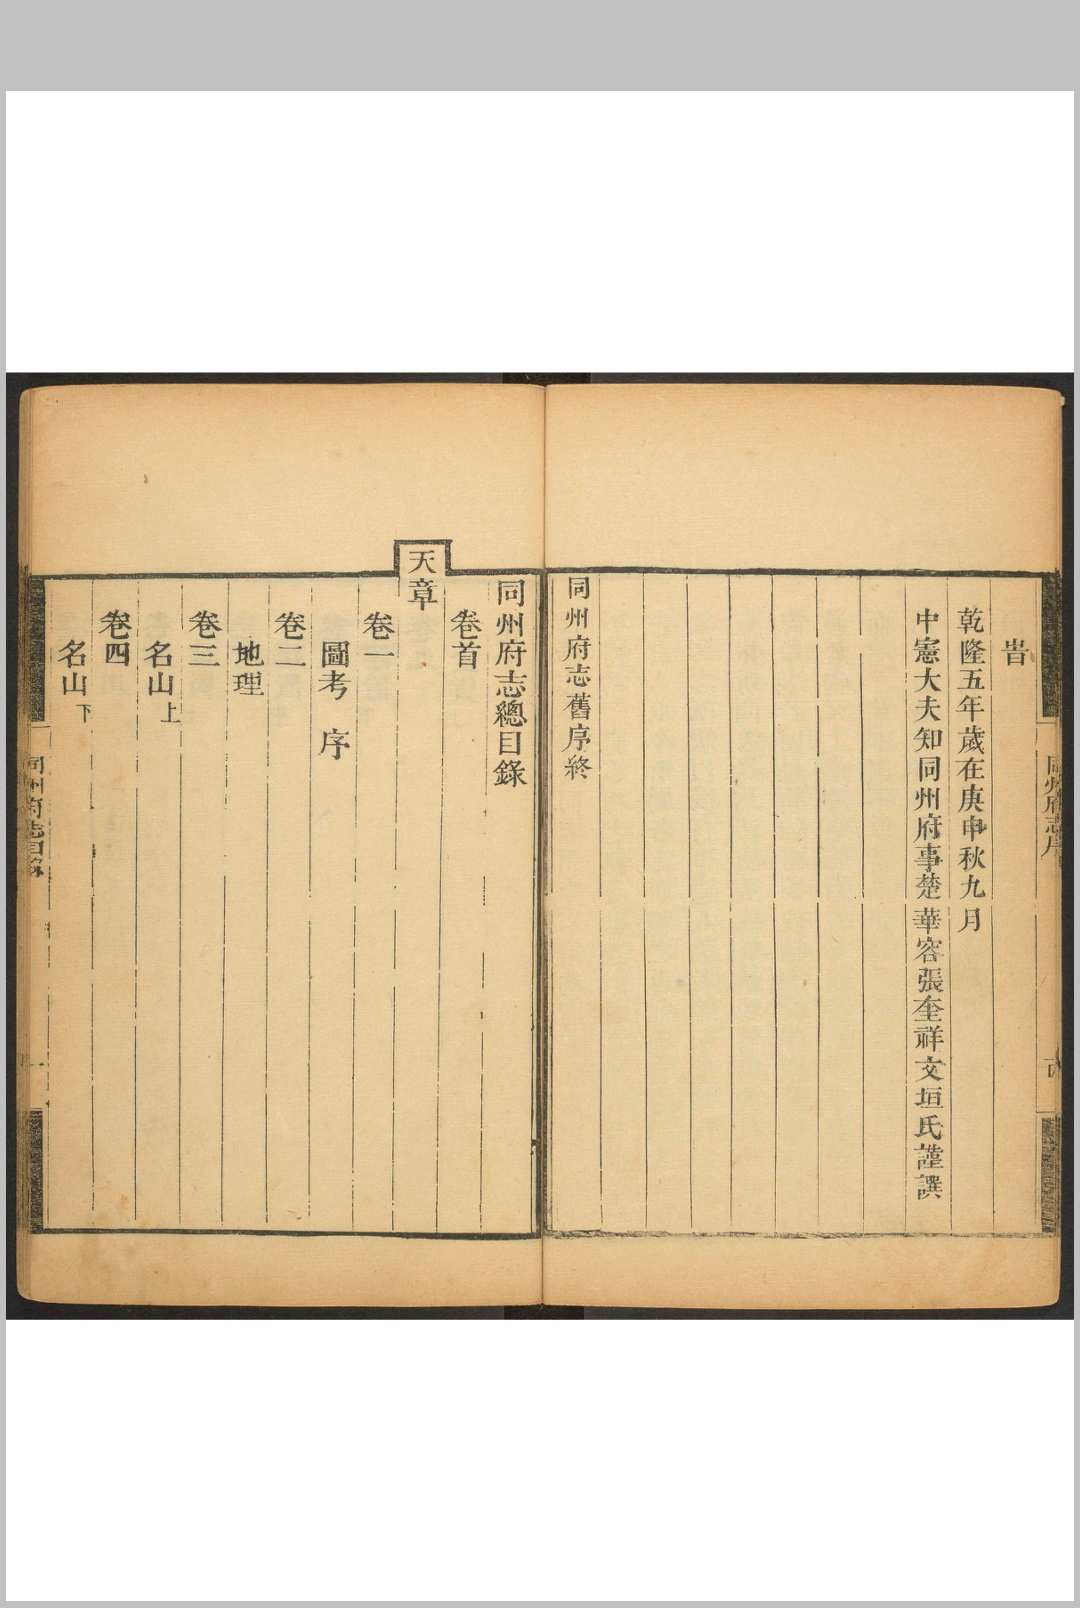 旹
乾隆五年歲在庚申秋九月
中憲大夫知同州府事楚華容張奎祥文垣氏謹譔
同州府志舊序終
同州府志總目錄
卷首
天章
卷一
圖考 序
卷二
地理
卷三
名山上
卷四
名山下
同州府志目錄
一